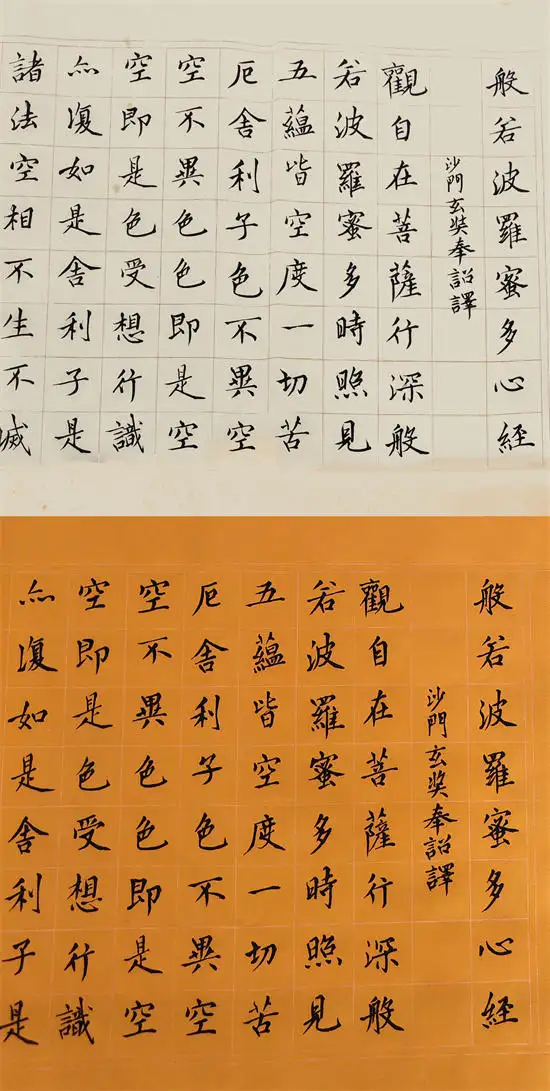 般若波羅蜜多心經
沙門玄奘奉詔譯
觀自在菩薩行深般
若波羅蜜多時照見
五蘊皆空度一切苦
厄舍利子色不異空
空不異色色即是空
空即是色受想行識
亦復如是舍利子是
諸法空相不生不滅
般若波羅蜜多心經
沙門玄奘奉詔譯
觀自在菩薩行深般
若波羅蜜多時照見
五蘊皆空度一切苦
厄舍利子色不異空
空不異色色即是空
空即是色受想行識
亦復如是舍利子是